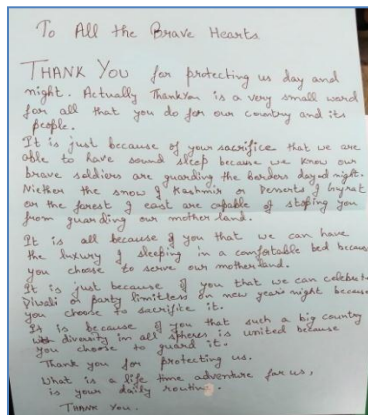 To All the Brave Hearts
THANK YOU for protecting us day and
night. Actually Thankyou is a very small word
for all that you do for our country and its
people.
It is just because of your sacrifice that we are
able to have sound sleep because we know our
brave soldiers are guarding the borders day & night.
Niether the snow of Kashmir or Desserts of Gujrat
or the forest of east are capable of stoping you
from guarding our mother land.
It is all because of you that we can have
the luxury of sleeping in a comfortable bed because
you choose to serve our motherland.
It is just because of you that we can celebrate
Diwali or party limitless on new years night because
you choose to sacrifice it.
It is because of you that such a big country
diversity in all spheres is united because
you choose to guard it.
Thank you for protecting us.
What is a life time adventure for us,
is your daily routine.
THANK YOU.